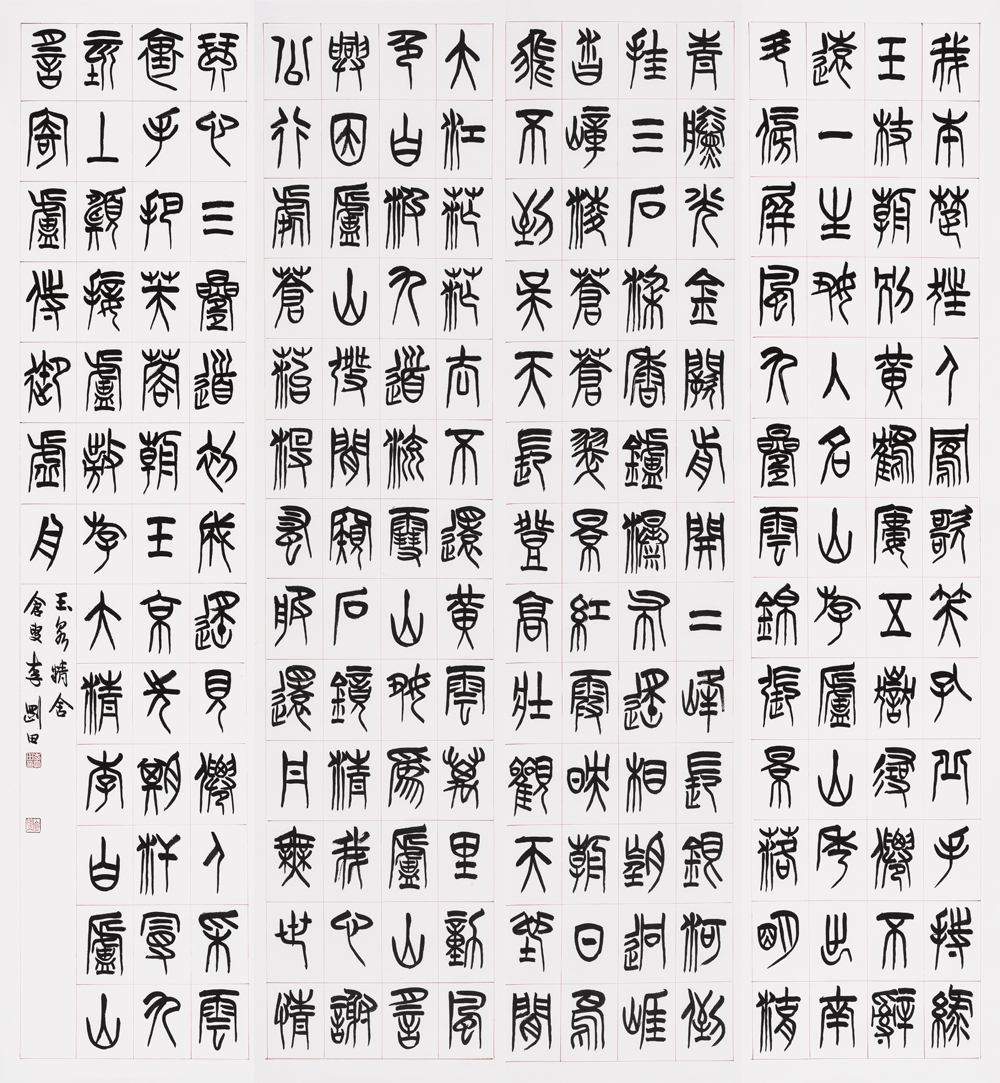 我本楚狂人鳳歌笑孔丘手持綠
王杖朝別黃鶴廔五嶽尋僊不辭
遠一生好人名山游廬山秀出南
斗傍屏風九疊雲錦張景落明湖
青黛光金闕前開二峰長銀河倒
挂三石梁香鑪瀑布遙相望迴崖
沓嶂淩蒼蒼翠景紅霞映朝日鳥
飛不到吳天長登高壯觀天地間
大江茫茫去不還黃雲萬里動風
色白波九道流雪山好為廬山謠
興因廬山發閒窺石鏡清我心謝
公行處蒼苔沒早服還丹無世情
琴心三疊道初成遙見僊人采雲
裏手把芙蓉朝玉京先期汗漫九
垓上願接盧敖游大清李白廬山
謠寄盧侍御虛舟
玉泉精舍
倉叟李剛田